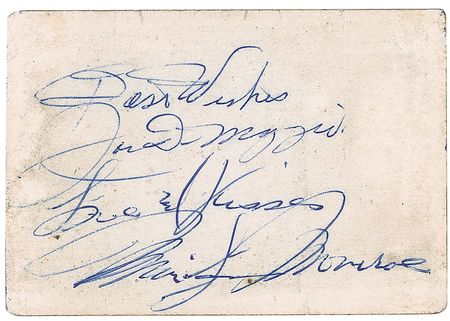 Best Wishes
Joe DiMaggio
Love & Kisses
Marilyn Monroe